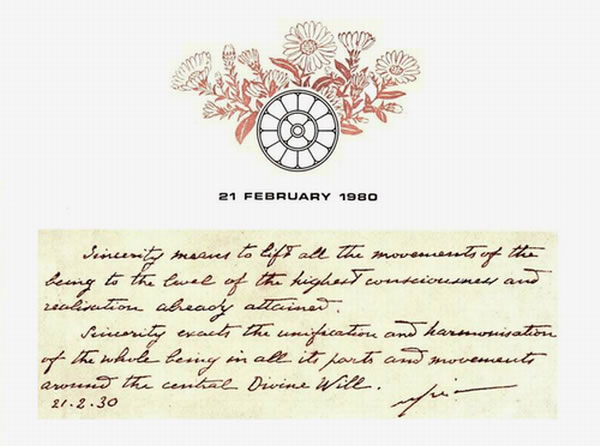 21 FEBRUARY 1980
Sincerity means to lift all the movements of the
being to the level of the highest consciousness and
realisation already attained.
Sincerity exacts the unification and harmonisation
of the whole being in all its parts and movements
around the central Divine Will.
21.2.30